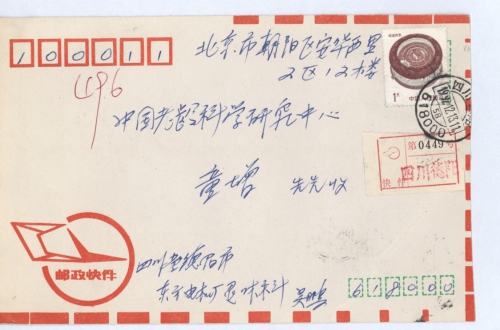 100011
北京市朝阳区安华西里
2区12楼
496
中国老龄科学研究中心
童增 先生收
1元
四川
618000
第0449号
快件
四川德阳
邮政快件
四川省德阳市
吴鹏
618000